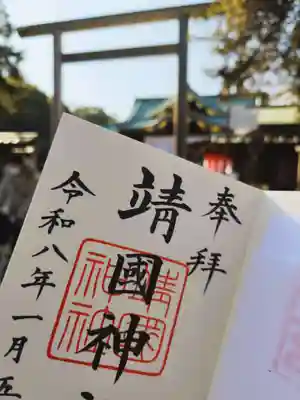 奉拝
靖國神
令和八年一月五
靖國神社